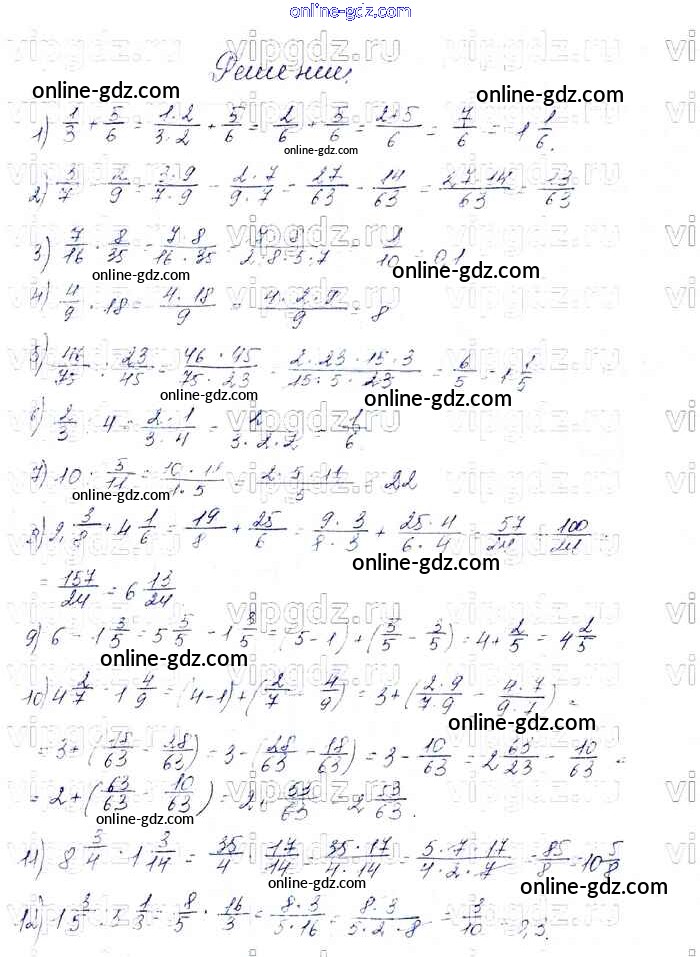 online-gdz.com
Решение.
online-gdz.com online-gdz.com
1) 1/3 + 5/6 = 1·2/3·2 + 5/6 = 2/6 + 5/6 = 2+5/6 = 7/6 = 1 1/6.
online-gdz.com
2) 3/7 - 2/9 = 3·9/7·9 - 2·7/9·7 = 27/63 - 14/63 = 27-14/63 = 13/63
3) 7/16 · 8/35 = 7·8/16·35 = 7·8/2·8·5·7 = 1/10 = 0,1
online-gdz.com online-gdz.com
4) 4/9 · 18 = 4·18/9 = 4·2·9/9 = 8
5) 46/75 : 23/45 = 46·45/75·23 = 2·23·15·3/15·5·23 = 6/5 = 1 1/5
online-gdz.com online-gdz.com
6) 2/3 : 4 = 2·1/3·4 = 2/3·2·2 = 1/6
7) 10 : 5/11 = 10·11/1·5 = 2·5·11/5 = 22
online-gdz.com
8) 2 3/8 + 4 1/6 = 19/8 + 25/6 = 9·3/8·3 + 25·4/6·4 = 57/24 + 100/24 =
online-gdz.com
= 157/24 = 6 13/24
9) 6 - 1 3/5 = 5 5/5 - 1 3/5 = (5-1) + (5/5 - 3/5) = 4 + 2/5 = 4 2/5
online-gdz.com
10) 4 2/7 - 1 4/9 = (4-1) + (2/7 - 4/9) = 3 + (2·9/7·9 - 4·7/9·7) =
online-gdz.com
= 3 + (18/63 - 28/63) = 3 - (28/63 - 18/63) = 3 - 10/63 = 2 63/23 - 10/63 =
= 2 + (63/63 - 10/63) = 2 + 53/63 = 2 53/63.
online-gdz.com
11) 8 3/4 · 1 3/14 = 35/4 · 17/14 = 35·17/4·14 = 5·7·17/4·2·7 = 85/8 = 10 5/8
online-gdz.com online-gdz.com
12) 1 3/5 : 5 1/3 = 8/5 : 16/3 = 8·3/5·16 = 8·3/5·2·8 = 3/10 = 0,3.
online-gdz.com